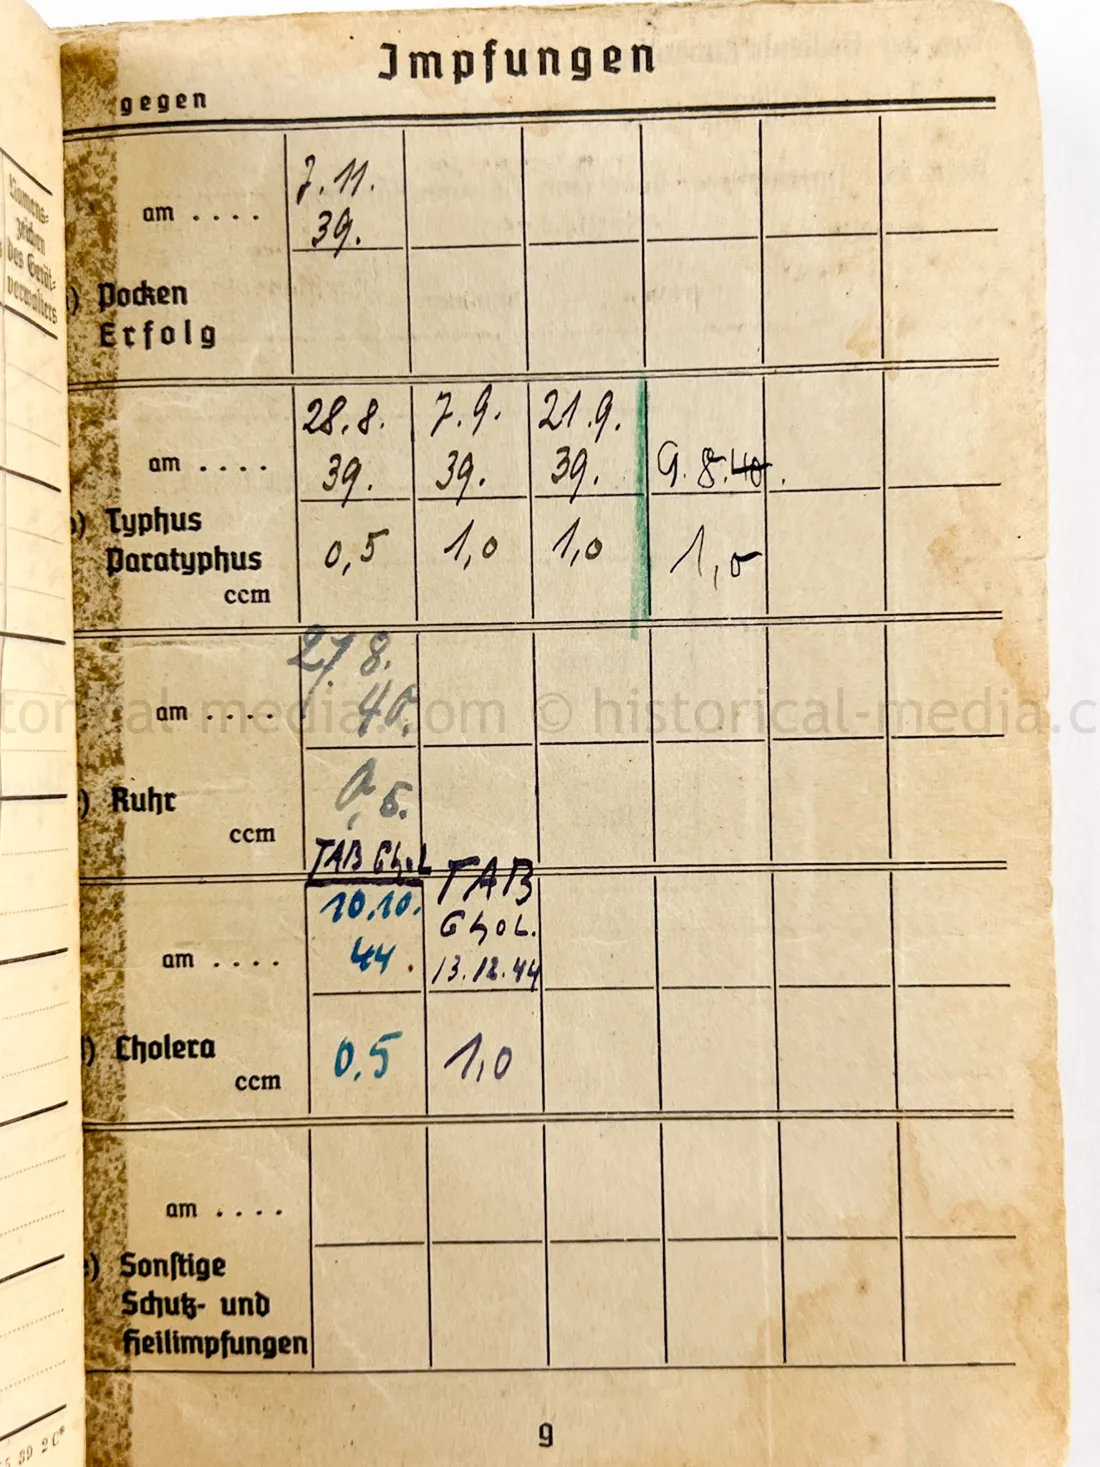 Impfungen
gegen
Namens-
zeichen
des Gerät-
verwalters
7.11.
am . . . . 39.
) Pocken
Erfolg
28.8. 7.9. 21.9.
am . . . . 39. 39. 39. 9.8.40.
) Typhus
Paratyphus 0,5 1,0 1,0 1,0
ccm
27.8.
am . . . . 40.
) Ruhr 0,5.
ccm
TAB Chol TAB
10.10. Chol.
am . . . . 44. 13.12.44
) Cholera 0,5 1,0
ccm
am . . . .
) Sonstige
Schutz- und
Heilimpfungen
9
39 2C
historical-media.com © historical-media.c